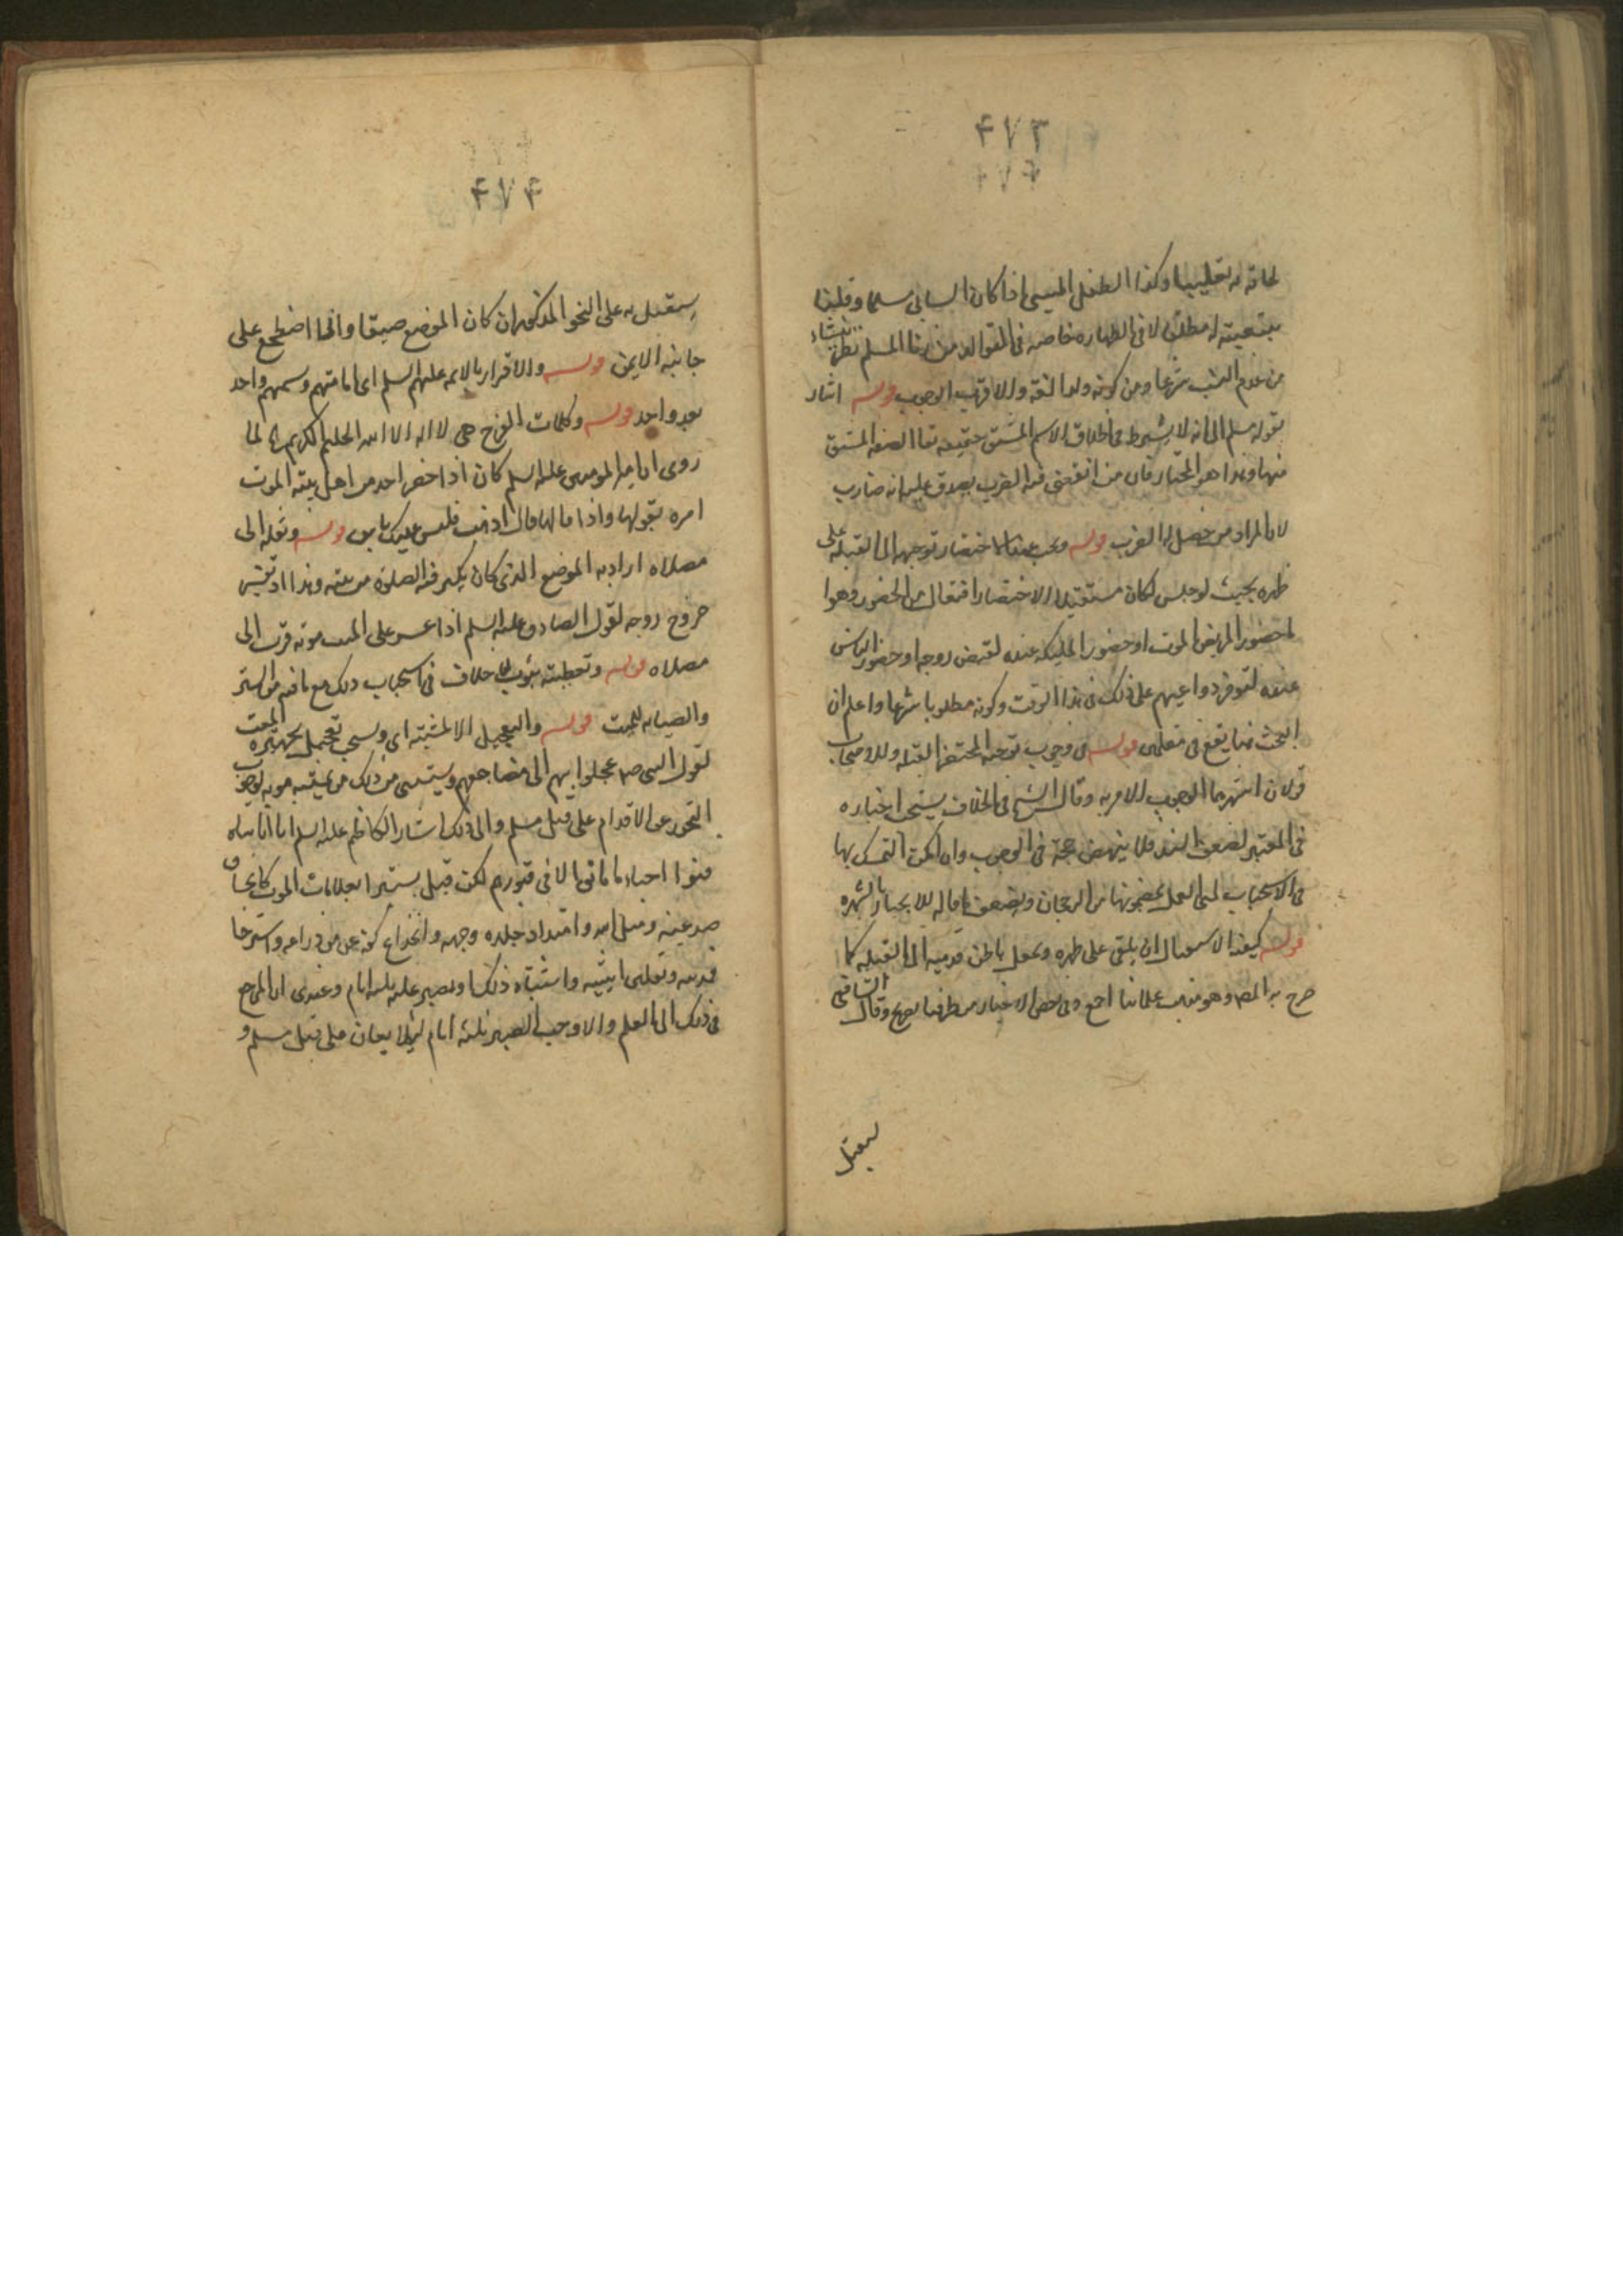 ۴۷۳
۴۷۴
لحاقه به تغليبا وكذا الطفل المسبي اذا كان السابي مسلما وقلنا
بتبعيته له مطلقا لا في الطهاره خاصه في المتولد من زنا المسلم نظر ينشاء
من عدم النسب شرعا ومن كونه ولدا لغة والاقرب الوجوب قوله اشار
بقوله مسلم الى انه لا يشترط في اطلاق الاسم المشتق حقيقه بقا الصفه المشتق
منها وهذا هو المختار فان من انقضى منه الضرب يصدق عليه انه ضارب
لان المراد من حصل له الضرب قوله ويجب عند الاحتضار توجهه الى القبله على
ظهره بحيث لو جلس لكان مستقبلا الاحتضار افتعال من الحضور وهو ا
لحضور المريض الموت او حضور المليكه عنده لقبض روحه او حضور الناس
عنده لتوفر دواعيهم على ذلك في هذا الوقت وكونه مطلوبا شرعا واعلم ان
البحث هنا يقع في مقامين قوله في وجوب توجه المحتضر الى القبله وللاصحاب
قولان اشهرهما الوجوب للامر به وقال الشيخ في الخلاف يستحب اختاره
في المعتبر لضعف السند فلا ينهض حجة في الوجوب وان امكن التمسك بها
في الاستحباب لمعنى العمل بمضمونها من الرجحان ويضعف ما قاله للانجبار بالشهره
قوله كيفية الاستقبال ان يلقى على ظهره ويجعل باطن قدميه الى القبله كما
صرح به المص وهو مذهب علمائنا اجمع وفي بعض الاخبار من طرقنا تصريح وقال الشافعي
يستقبل
۴۷۴
يستقبل به على النحو المذكور ان كان الموضع ضيقا والا اضطجع على
جانبه الايمن قوله والاقرار بالائمه عليهم السلم اى امامتهم وتسميهم واحد
بعد واحد قوله وكلمات الفرج هي لا اله الا الله الحليم الكريم الخ لما
روى ان امير المومنين عليه السلم كان اذا حضر احد من اهل بيته الموت
امره بقولها واذا قالها قال اذهب فليس عليك باس قوله ونقله الى
مصلاه اراد به الموضع الذي كان يكثر فيه الصلوة من بيته وهذا اذا تعسر
خروج روحه لقول الصادق عليه السلم اذا عسر على الميت موته قرب الى
مصلاه قوله وتغطيته بثوب لا خلاف في استحباب ذلك مع ما فيه من الستر
والصيانه للميت قوله والتعجيل الا المشتبه اى ويستحب تعجيل تجهيز الميت
لقول النبي ص عجلوا بهم الى مضاجعهم ويستثنى من ذلك من يشتبه موته لوجوب
التحرز عن الاقدام على قتل مسلم والى ذلك اشار الكاظم عليه السلم ان اناسا
دفنوا احياء ما ماتوا الا في قبورهم لكن قيل يستبرا بعلامات الموت كانخساف
صدغيه وميل انفه وامتداد جلده وجهه وانخلاع كفه عن من ذراعه واسترخا
قدميه وتقلص انثييه واشتباه ذلك ويصبر عليه ثلثه ايام وعندى ان المرجع
في ذلك الى العلم والا وجب الصبر ثلثه ايام لئلا يعان على قتل مسلم و